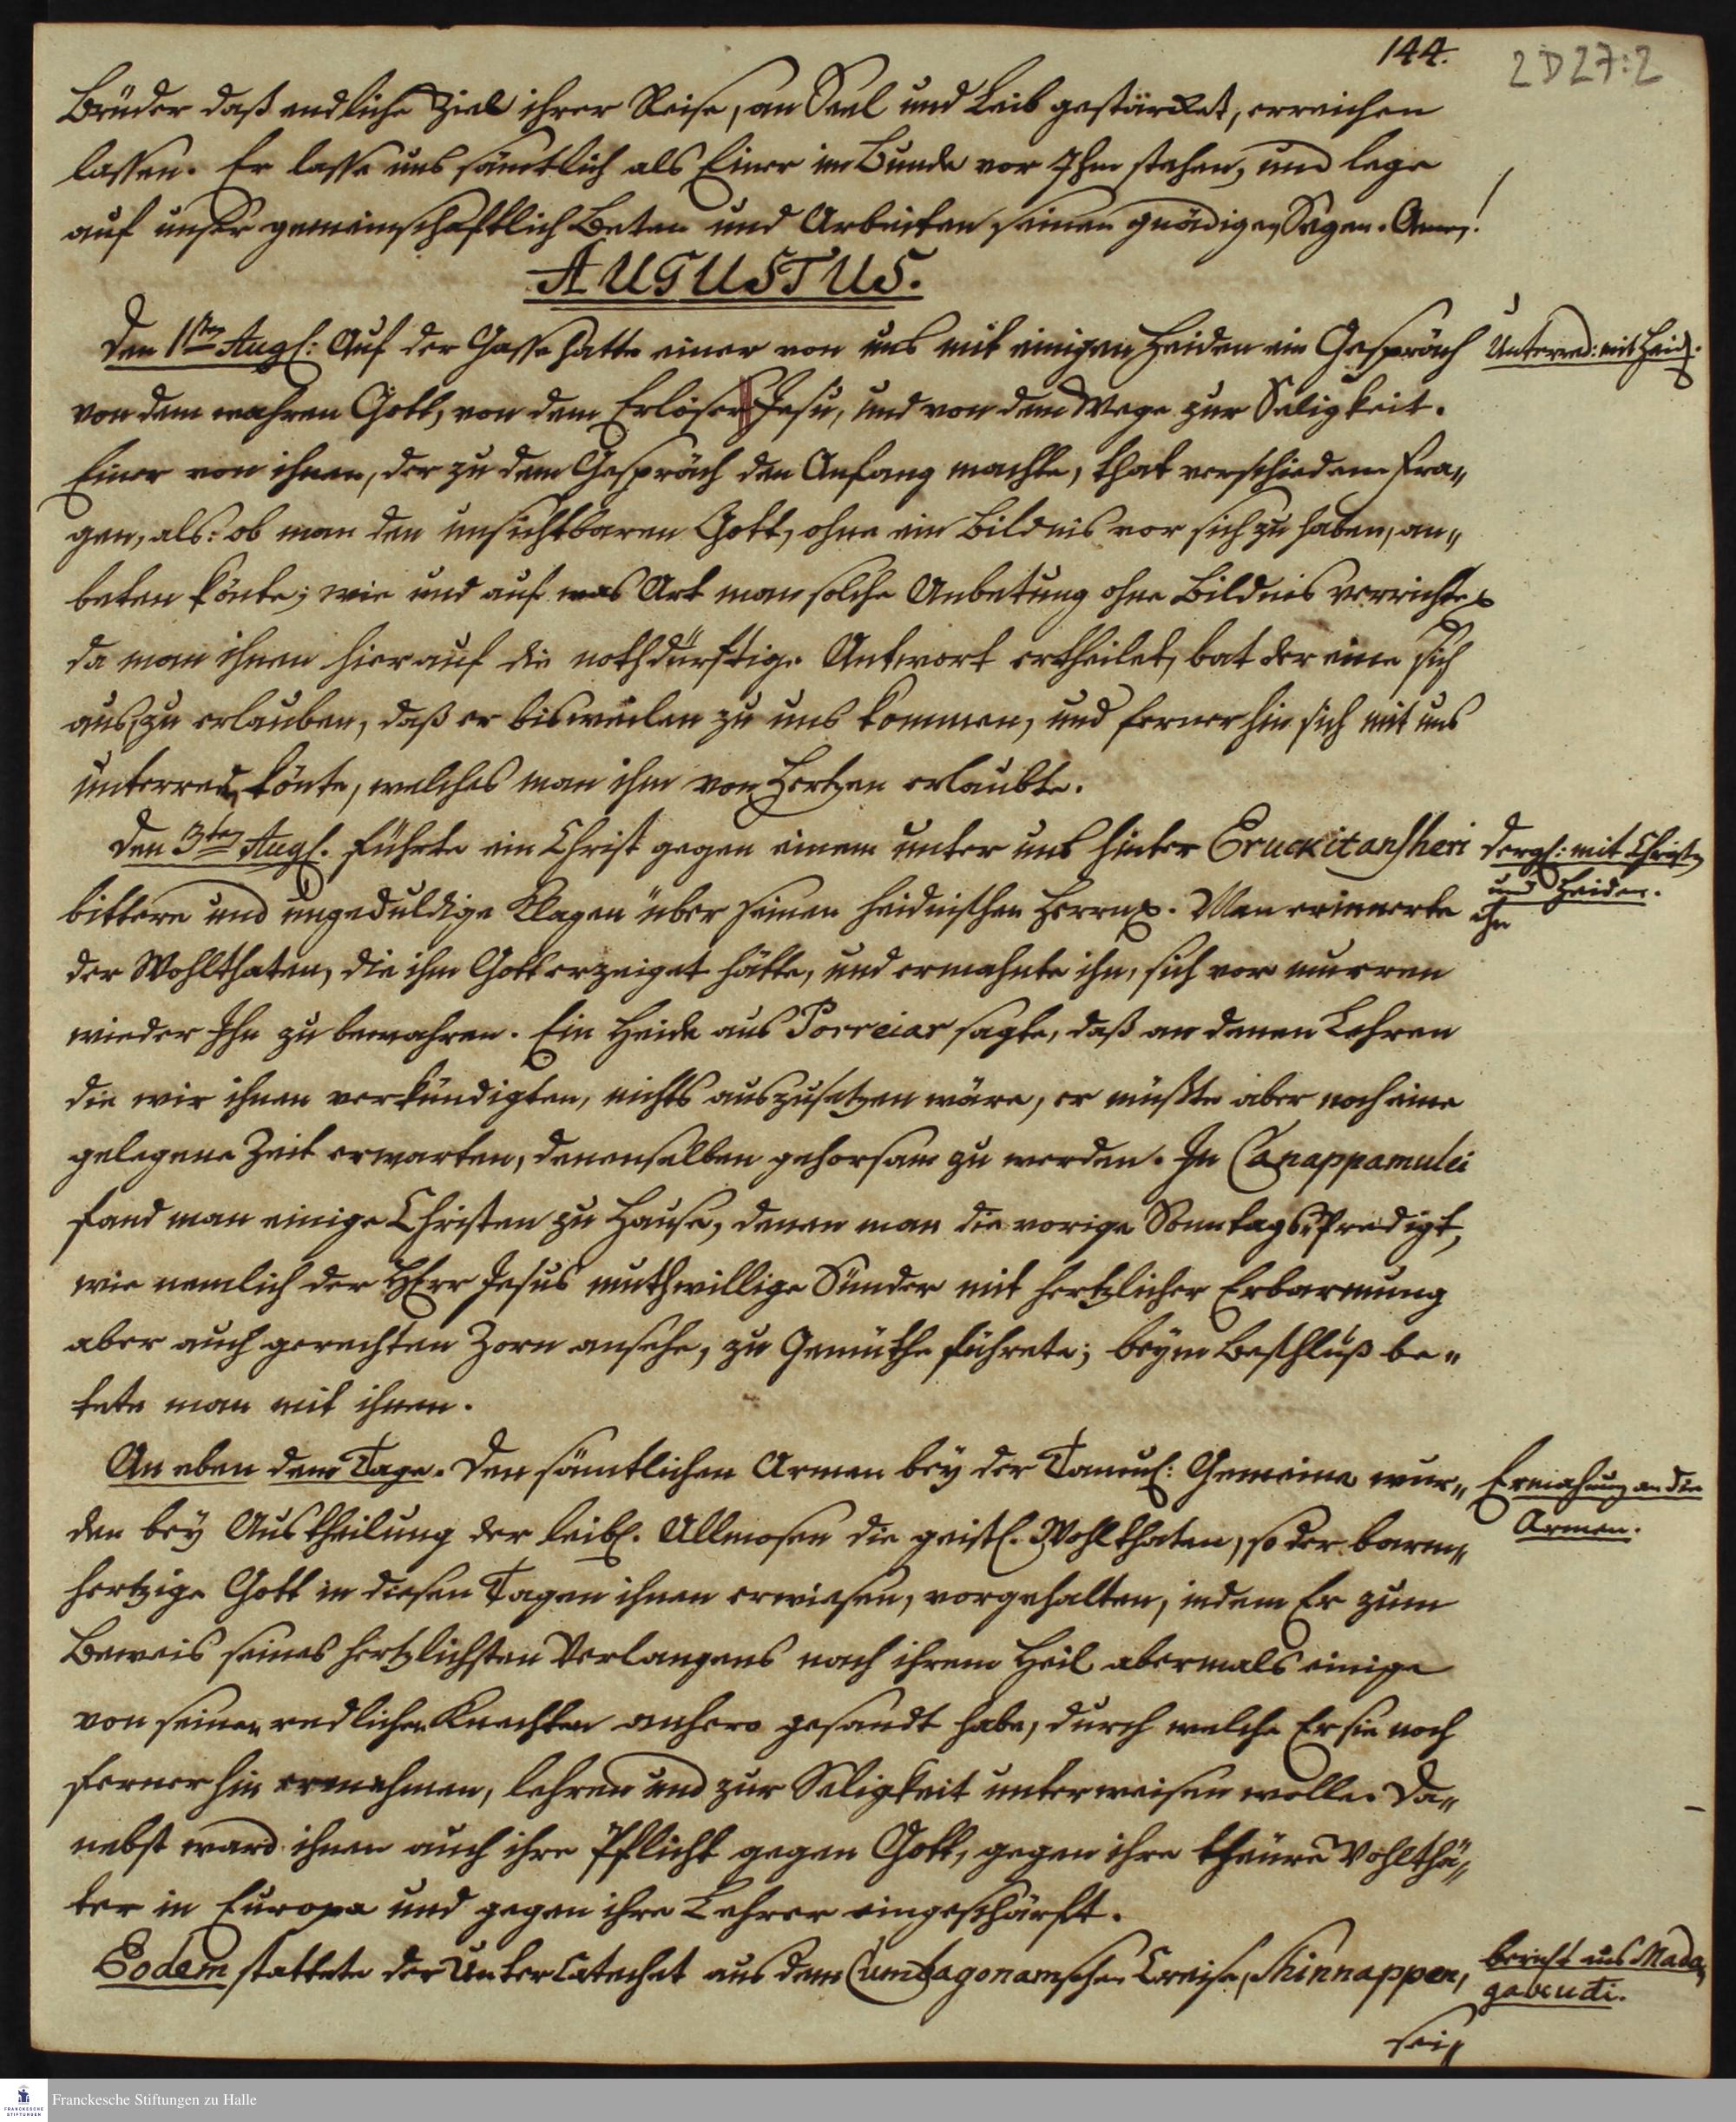 144.
2 D 27:2
Brüder daß endliche Ziel ihrer Reise, an Seel und Leib gestärcket, erreichen
lassen. Er lasse uns sämtlich als Einer im Bunde vor Ihm stehen, und lege
auf unser gemeinschaftlich Beten und Arbeiten seinen gnädigen Segen. Amen!
AUGUSTUS.
Den 1sten Augl: Auf der Gasse hatte einer von uns mit einigen Heiden ein Gespräch
Unterred: mit Heid.
von dem wahren Gott, von dem Erlöser Jesu, und von dem Wege zur Seligkeit.
Einer von ihnen, der zu dem Gespräch den Anfang machte, that verschiedene Fra„
gen, als: ob man den unsichtbaren Gott, ohne ein Bildnis vor sich zu haben, an„
beten könte; wie und auf was Art man solche Anbetung ohne Bildnis verrichte
da man ihnen hierauf die nothdürftige Antwort ertheilet, bat der eine sich
aus, zu erlauben, daß er bisweilen zu uns kommen, und fernerhin sich mit uns
unterreden könte, welches man ihm von Hertzen erlaubte.
Den 3ten Augl. führte ein Christ gegen einem unter uns hinter Eruckitansheri
dergl: mit Christen
und Heiden.
bittere und ungeduldige Klagen über seinen heidnischen Herrn. Man erinnerte ihn
der Wohlthaten, die ihm Gott erzeiget hätte, und ermahnte ihn, sich vor murren
wieder Ihn zu bewahren. Ein Heide aus Porreiar sagte, daß an denen Lehren
die wir ihnen verkündigten, nichts auszusetzen wäre, er müßte aber noch eine
gelegene Zeit erwarten, denenselben gehorsam zu werden. In Canappamulei
fand man einige Christen zu Hause, denen man die vorige Sonntags-Predigt,
wie nemlich der HErr Jesus muthwillige Sünder mit hertzlicher Erbarmung
aber auch gerechten Zorn ansehe, zu Gemüthe führete; beym Beschluß be„
tete man mit ihnen.
An eben dem Tage. Den sämtlichen Armen bey der Tamul: Gemeine wur„
Ermahnung an die
Armen.
den bey Austheilung der leibl. Allmosen die geistl. Wohlthaten, so der barm„
hertzige Gott in diesen Tagen ihnen erwiesen, vorgehalten, indem Er zum
Beweis seines hertzlichsten Verlangens nach ihrem Heil abermals einige
von seinen redlichen Knechten anhero gesandt habe, durch welche Er sie noch
fernerhin ermahnen, lehren und zur Seligkeit unterweisen wolle. Da„
nebst ward ihnen auch ihre Pflicht gegen Gott, gegen ihre theure Wohlthä„
ter in Europa und gegen ihre Lehrer eingeschärft.
Eodem stattete der Unter Catechet aus dem Cumbagonamschen Creise, Shinnappen,
bericht aus Mada„
gabcudi.
sei„
Franckesche Stiftungen zu Halle